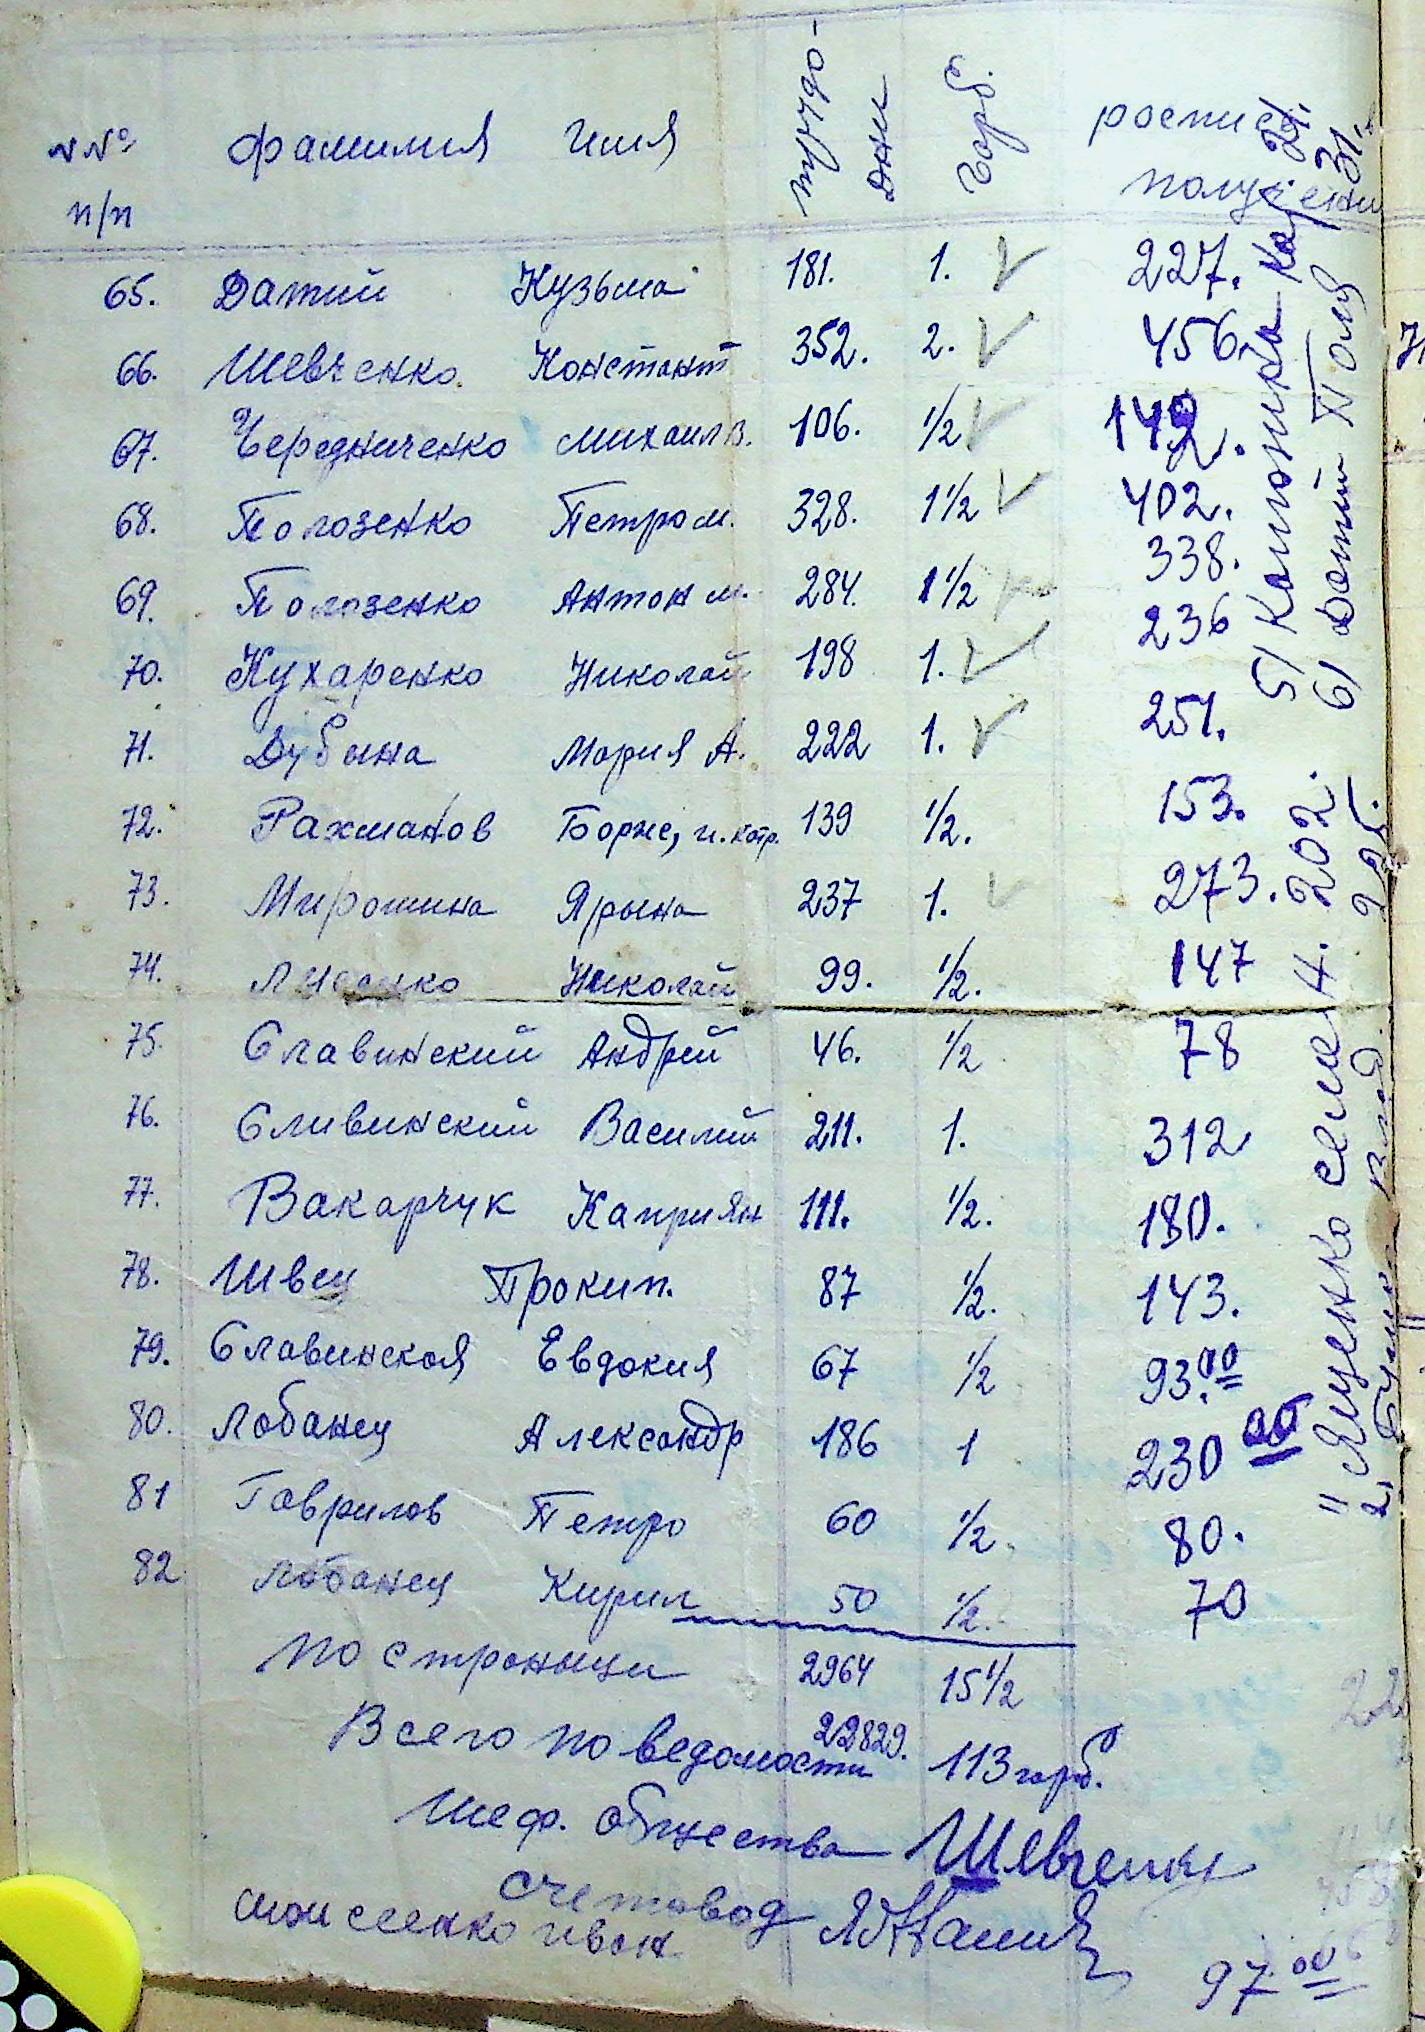 №№ п/п фамилия имя трудо-дни гарб. роспис получении
65. Датий Кузьма 181. 1. 227.
66. Шевченко. Констант 352. 2. 456.
67. Чередниченко Михаил В. 106. 1/2 142.
68. Полозенко Петро М. 328. 1 1/2 402.
69. Полозенко Антон М. 284. 1 1/2 338.
70. Кухаренко Николай 198 1. 236
71. Дубина Мария А. 222 1. 251.
72. Рахманов Борис, 139 1/2. 153.
73. Мирошина Ярына 237 1. 273.
74. Николай 99. 1/2. 147
75. Славинский Андрей 46. 1/2 78
76. Сливинский Василий 211. 1. 312
77. Вакарчук Каприян 111. 1/2. 180.
78. Швец Прокип. 87 1/2. 143.
79. Славинская Евдокия 67 1/2 93.00
80. Лобанец Александр 186 1 230 00
81 Гаврилов Петро 60 1/2. 80.
82 Лобанец Кирил 50 1/2. 70
по страници 2964 15 1/2
Всего по ведомости 22829. 113 гарб.
Шеф. общества Шевченко
счетовод
Моисеенко Иван
97.00
5/ Калюжика 21.
6/ Датий Пол 31.
Яценко Семен. 202.
2, 225.